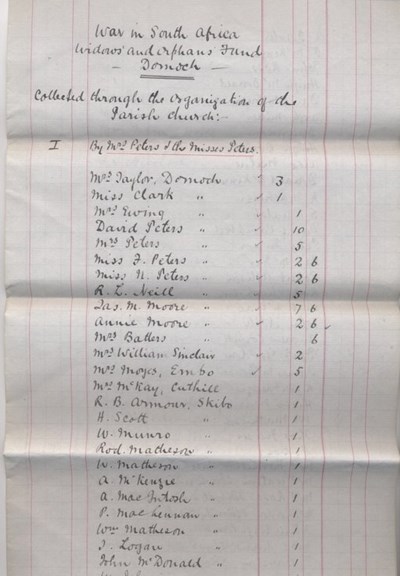 War in South Africa
Widows' and Orphans' Fund
— Dornoch —
Collected through the organization of the
Parish Church:-
I By Mrs Peters & the Misses Peters.
Mrs Taylor, Dornoch ✓ 3
Miss Clark " ✓ 1
Mrs Ewing " ✓ 1
David Peters " ✓ 10
Mrs Peters " ✓ 5
Miss J. Peters " ✓ 2 6
Miss N. Peters " ✓ 2 6
R. L. Neill " ✓ 5
Jas. M. Moore " ✓ 7 6
Annie Moore " ✓ 2 6 ✓
Mrs Batters " 6
Mrs William Sinclair ✓ 2
Mrs Moyes, Embo ✓ 5
Mrs McKay, Cuthill 1
R. B. Armour, Skibo 1
H. Scott " 1
W. Munro " 1
Rod. Matheson " 1
W. Matheson " 1
A. McKenzie " 1
A. MacIntosh " 1
P. MacLennan " 1
Wm Matheson " 1
J. Logan " 1
John McDonald " 1